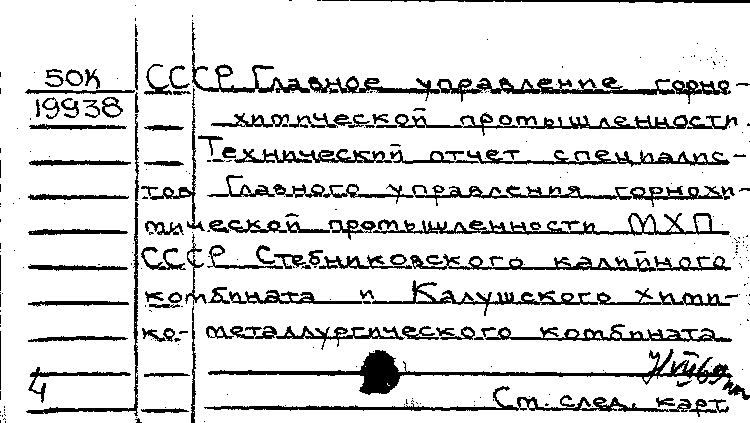 50К СССР. Главное управление горно-
19938 химической промышленности.
Технический отчет специалис-
тов Главного управления горнохи-
мической промышленности МХП
СССР Стебниковского калийного
комбината и Калушского хими-
ко-металлургического комбината
4 См. след. карт.